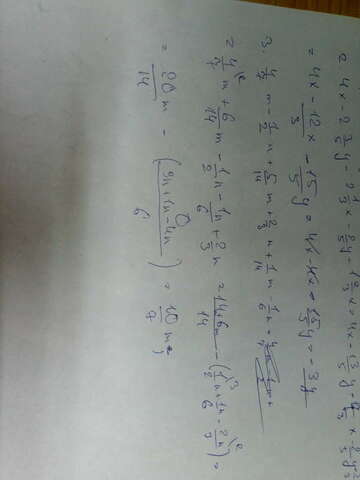 2. 4x - 2 3/5 y - 2 1/3 x + 2/5 y - 1 2/3 x = 4x - 13/5 y
= 4x - 12/3 x - 15/5 y = 4x - 4x - 15/5 y = - 3y
3. 4/7 m - 1/2 n + 5/14 m + 2/3 n + 1/14 m - 1/6 n =
= 4/7 m + 6/14 m - 1/2 n - 1/6 n + 2/3 n = 14+6m/14 - (1/2 n + 1n/6 - 2n/3) =
= 20/14 m - (3n+1n-4n/6) = 10/7 m